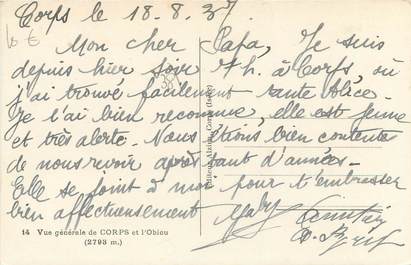 Corps le 18.8.37.
10 €
Mon cher Papa, Je suis
depuis hier soir 7 h. à Corps, où
j'ai trouvé facilement tante Alice.
Je l'ai bien reconnue, elle est jeune
et très alerte. Nous étions bien contents
de nous revoir après tant d'années -
Elle se joint à moi pour t'embrasser
bien affectueusement Gaby
14 Vue générale de CORPS et l'Obiou
(2793 m.)